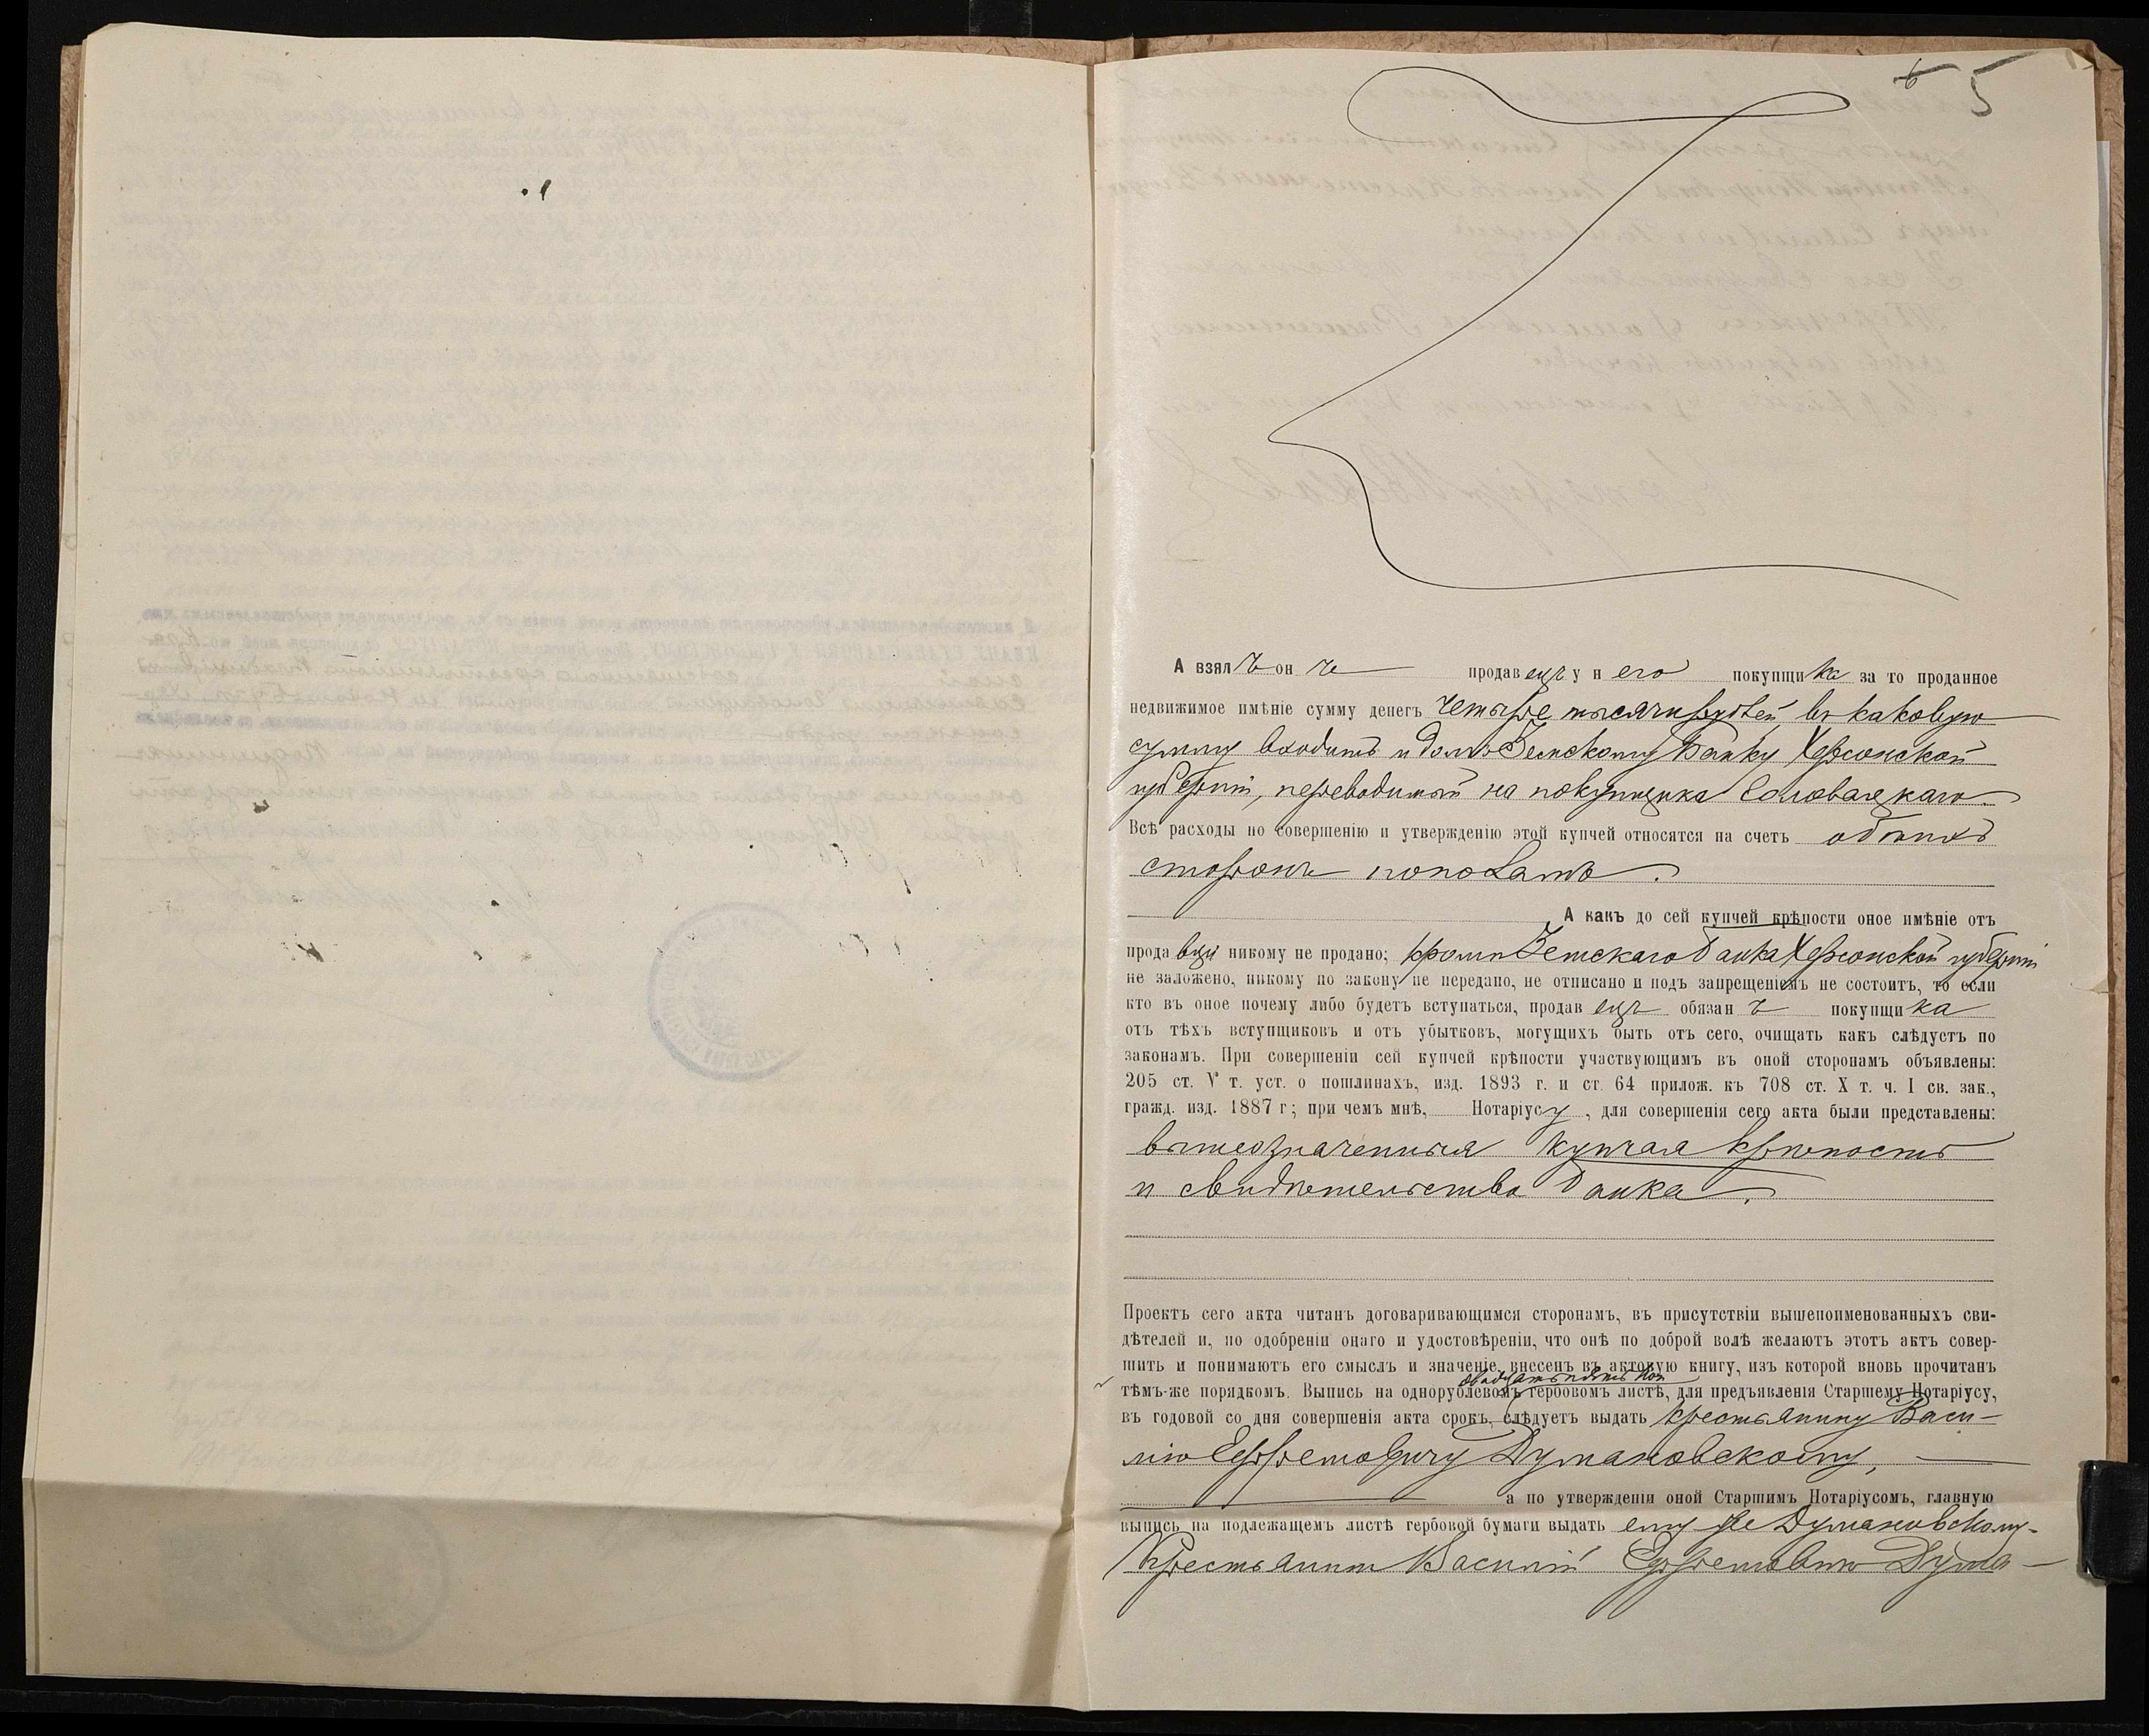 5
А взялъ онъ продавецъ у него покупщика за то проданное
недвижимое имѣніе сумму денегъ четыре тысячи рублей въ каковую
сумму входитъ и долгъ Земскому Банку Херсонской
губерніи, переводимый на покупщика
Всѣ расходы по совершенію и утвержденію этой купчей относятся на счетъ обѣихъ
сторонъ пополамъ.
А какъ до сей купчей крѣпости оное имѣніе отъ
продавца никому не продано; кромѣ Земскаго банка Херсонской губерніи
не заложено, никому по закону не передано, не отписано и подъ запрещеніемъ не состоитъ, то если
кто въ оное почему либо будетъ вступаться, продавецъ обязанъ покупщика
отъ тѣхъ вступщиковъ и отъ убытковъ, могущихъ быть отъ сего, очищать какъ слѣдуетъ по
законамъ. При совершеніи сей купчей крѣпости участвующимъ въ оной сторонамъ объявлены:
205 ст. V т. уст. о пошлинахъ, изд. 1893 г. и ст. 64 прилож. къ 708 ст. X т. ч. I св. зак.,
гражд. изд. 1887 г; при чемъ мнѣ, Нотаріусу, для совершенія сего акта были представлены:
вышеозначенная купчая крѣпость
и свидѣтельство банка.
Проектъ сего акта читанъ договаривающимся сторонамъ, въ присутствіи вышепоименованныхъ сви-
дѣтелей и, по одобреніи онаго и удостовѣреніи, что онѣ по доброй волѣ желаютъ этотъ актъ совер-
шить и понимаютъ его смыслъ и значеніе, внесенъ въ актовую книгу, изъ которой вновь прочитанъ
тѣмъ-же порядкомъ. Выпись на однорублевомъ гербовомъ листѣ, для предъявленія Старшему Нотаріусу,
въ годовой со дня совершенія акта срокъ, слѣдуетъ выдать крестьянину Васи-
лію Ефремовичу Думановскому,
а по утвержденіи оной Старшимъ Нотаріусомъ, главную
выпись на подлежащемъ листѣ гербовой бумаги выдать ему же Думановскому.
Крестьянинъ Василій Ефремовичъ Дума-